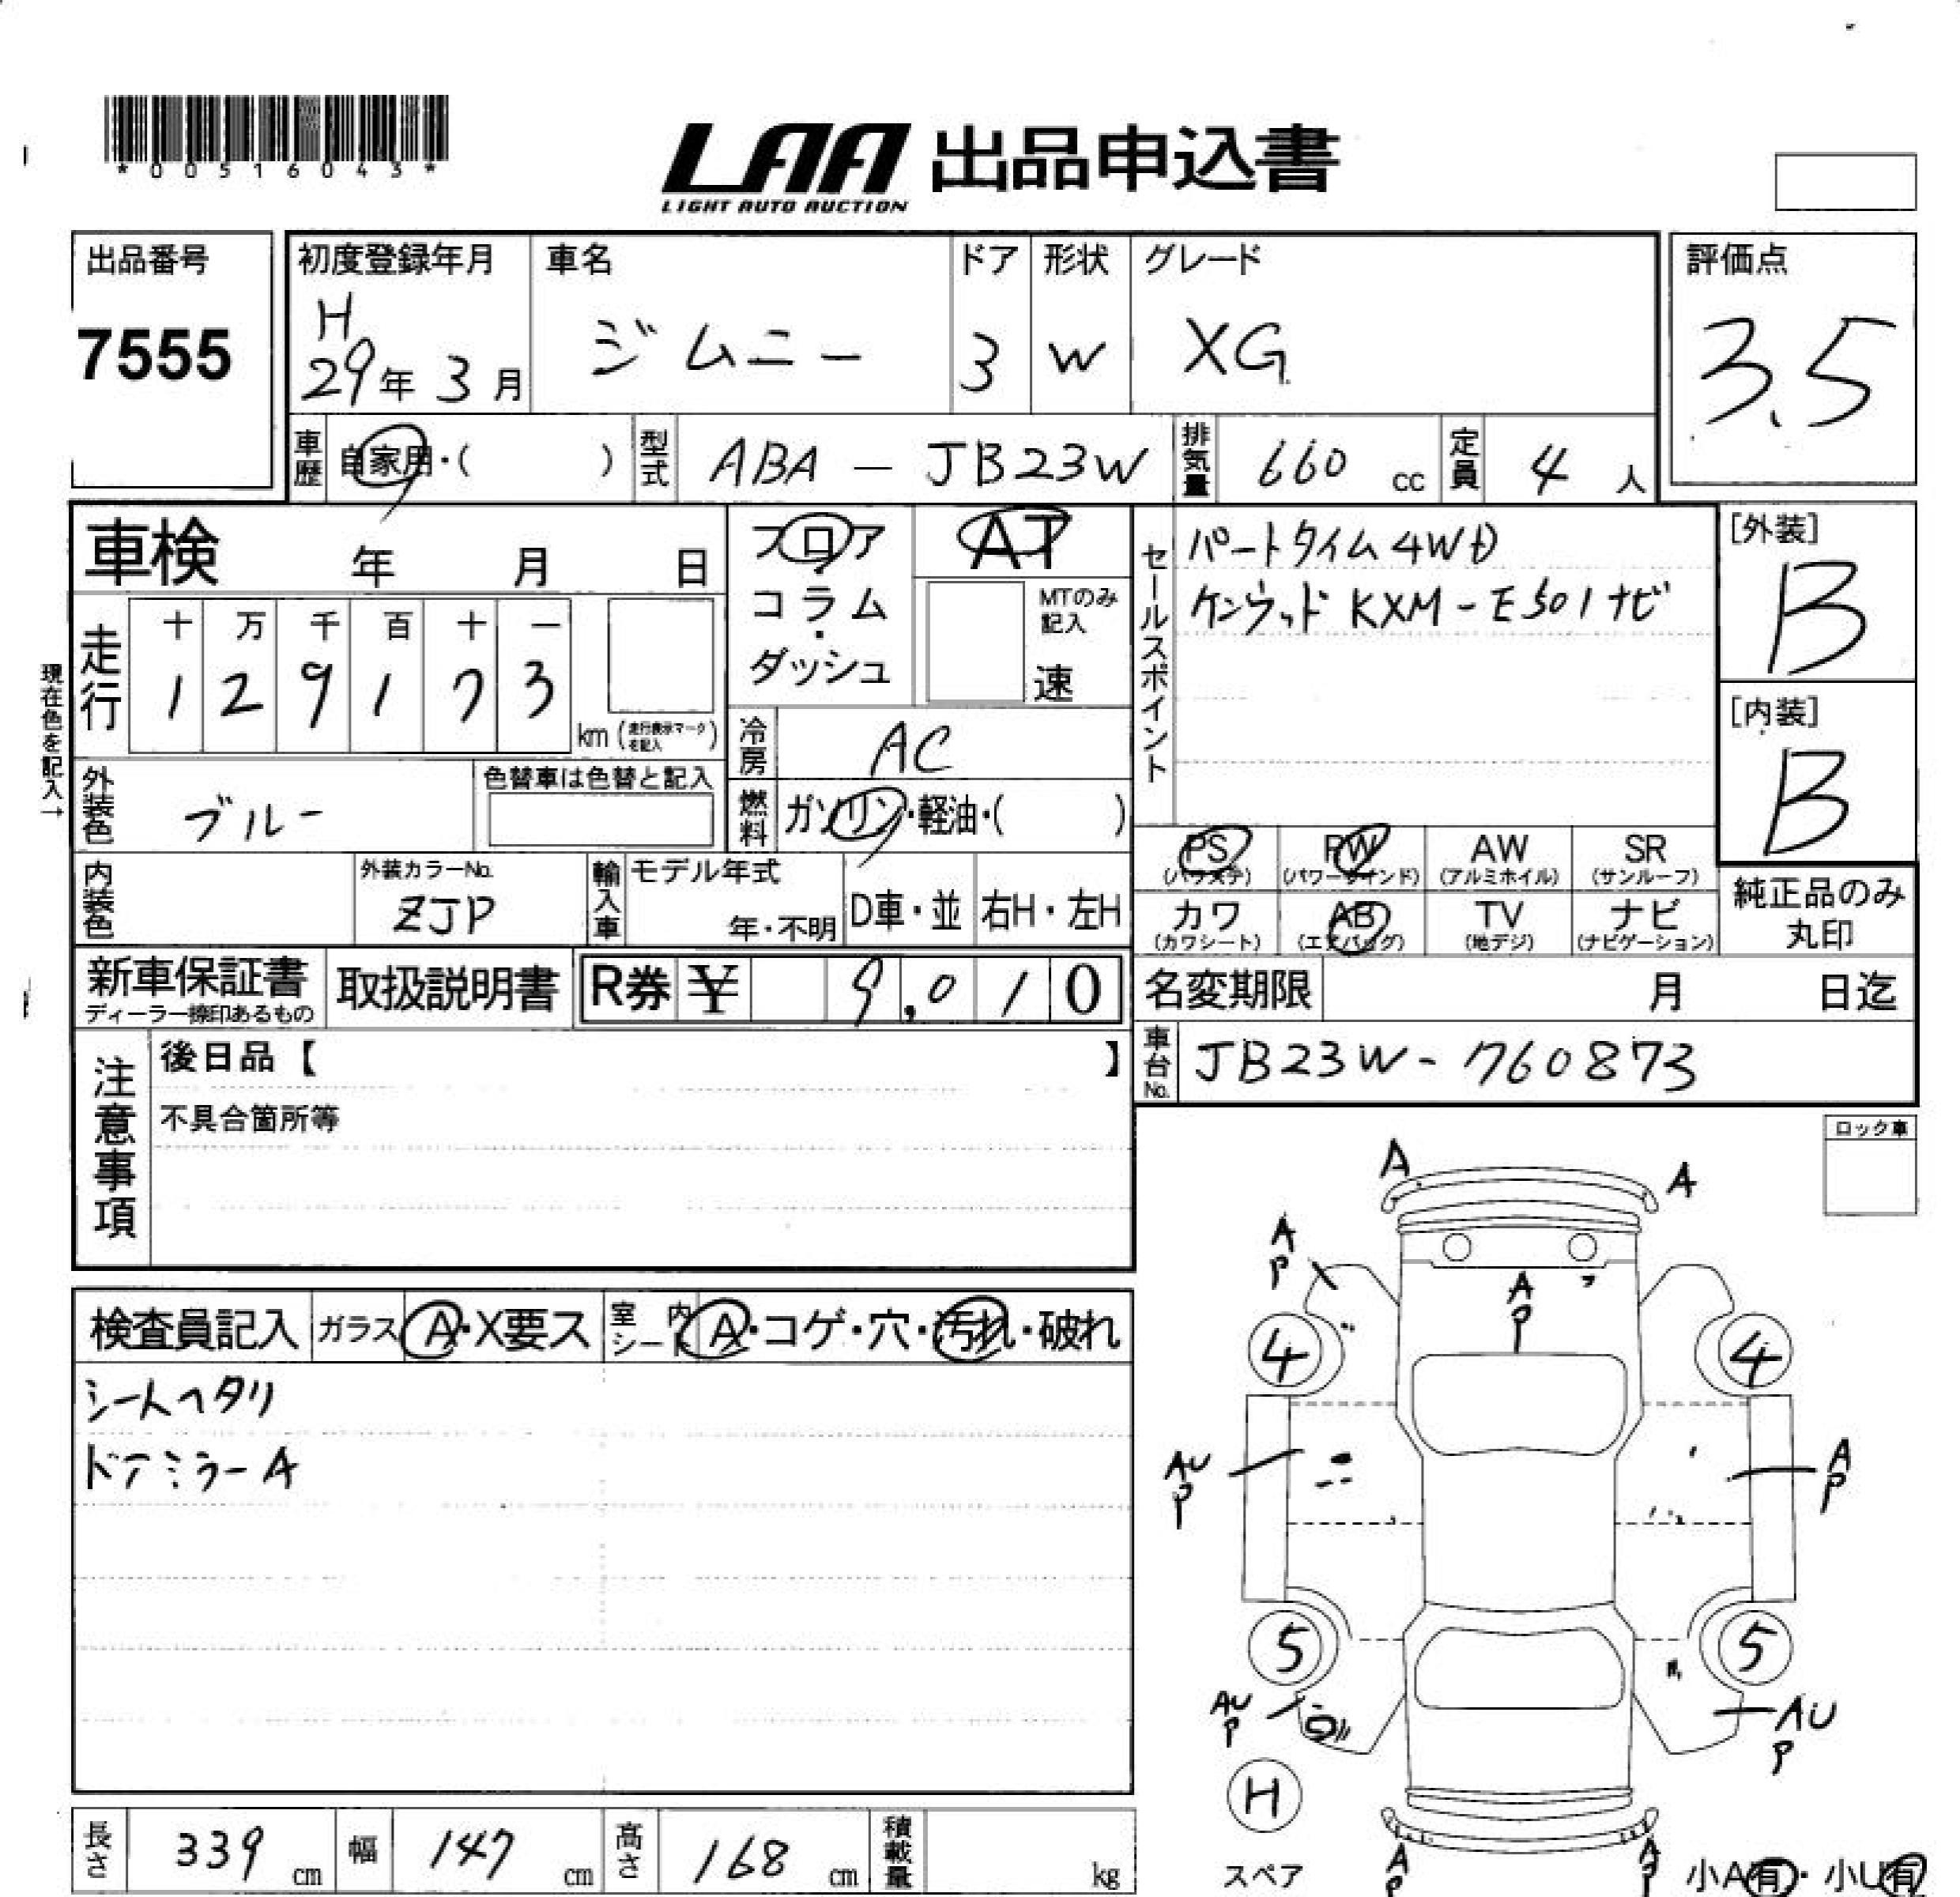 *00516043*
LAA 出品申込書
LIGHT AUTO AUCTION
出品番号
7555
初度登録年月
H
29年 3月
車名
ジムニー
ドア
3
形状
W
グレード
XG
評価点
3.5
車歴 自家用・( )
型式 ABA - JB23W
排気量 660 cc
定員 4 人
車検 年 月 日
フロア・コラム・ダッシュ
AT
MTのみ記入
速
セールスポイント
パートタイム4WD
ケンウッド KXM-E501ナビ
[外装]
B
[内装]
B
現在色を記入→
走行
十 万 千 百 十 一
1 2 9 1 7 3
km (走行表示マークを記入)
冷房 AC
燃料 ガソリン・軽油・( )
外装色 ブルー
色替車は色替と記入
内装色
外装カラーNo.
ZJP
輸入車
モデル年式
年・不明
D車・並
右H・左H
PS (パワステ)
PW (パワーウインド)
AW (アルミホイル)
SR (サンルーフ)
カワ (カワシート)
AB (エアバッグ)
TV (地デジ)
ナビ (ナビゲーション)
純正品のみ
丸印
新車保証書
ディーラー捺印あるもの
取扱説明書
R券 ¥ 9,010
名変期限 月 日迄
車台No. JB23W-760873
注意事項
後日品【 】
不具合箇所等
ロック車
検査員記入 ガラス A・X要ス 室内シート A・コゲ・穴・汚れ・破れ
シートヘタリ
ドアミラーA
A
A
A
P
A
P
4
4
AU
P
A
P
5
5
AU
P
AU
P
H
スペア
A
P
A
P
小A有・小U有
長さ 339 cm
幅 147 cm
高さ 168 cm
積載量 kg